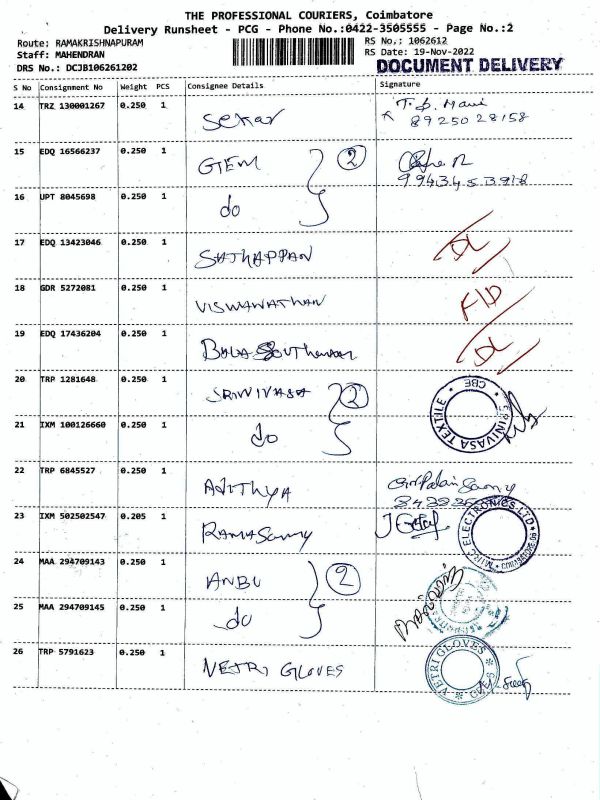 THE PROFESSIONAL COURIERS, Coimbatore
Delivery Runsheet - PCG - Phone No.:0422-3505555 - Page No.:2
Route: RAMAKRISHNAPURAM
RS No.: 1062612
Staff: MAHENDRAN
RS Date: 19-Nov-2022
DRS No.: DCJB106261202
DOCUMENT DELIVERY
S No Consignment No Weight PCS Consignee Details Signature
14 TRZ 130001267 0.250 1 Sekar
8925028158
15 EDQ 16566237 0.250 1 GEM 2
9943453918
16 UPT 8045698 0.250 1 do
17 EDQ 13423046 0.250 1 SATHAPPAN DL
18 GDR 5272081 0.250 1 VISWANATHAN
19 EDQ 17436204 0.250 1 DL
20 TRP 1281648 0.250 1 SRINIVASA 2
SRINIVASA TEXTILE * CBE *
21 IXM 100126660 0.250 1 do
22 TRP 6845527 0.250 1 AJITHYA
23 IXM 502502547 0.205 1 RAMASamy
ELECTRONICS LTD
24 MAA 294709143 0.250 1 ANBU 2
25 MAA 294709145 0.250 1 do
26 TRP 5791623 0.250 1 VETRI GLOVES
VETRI GLOVES